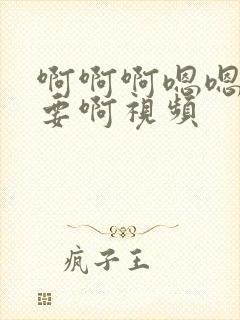 啊啊啊嗯嗯
要啊視頻
疯子王